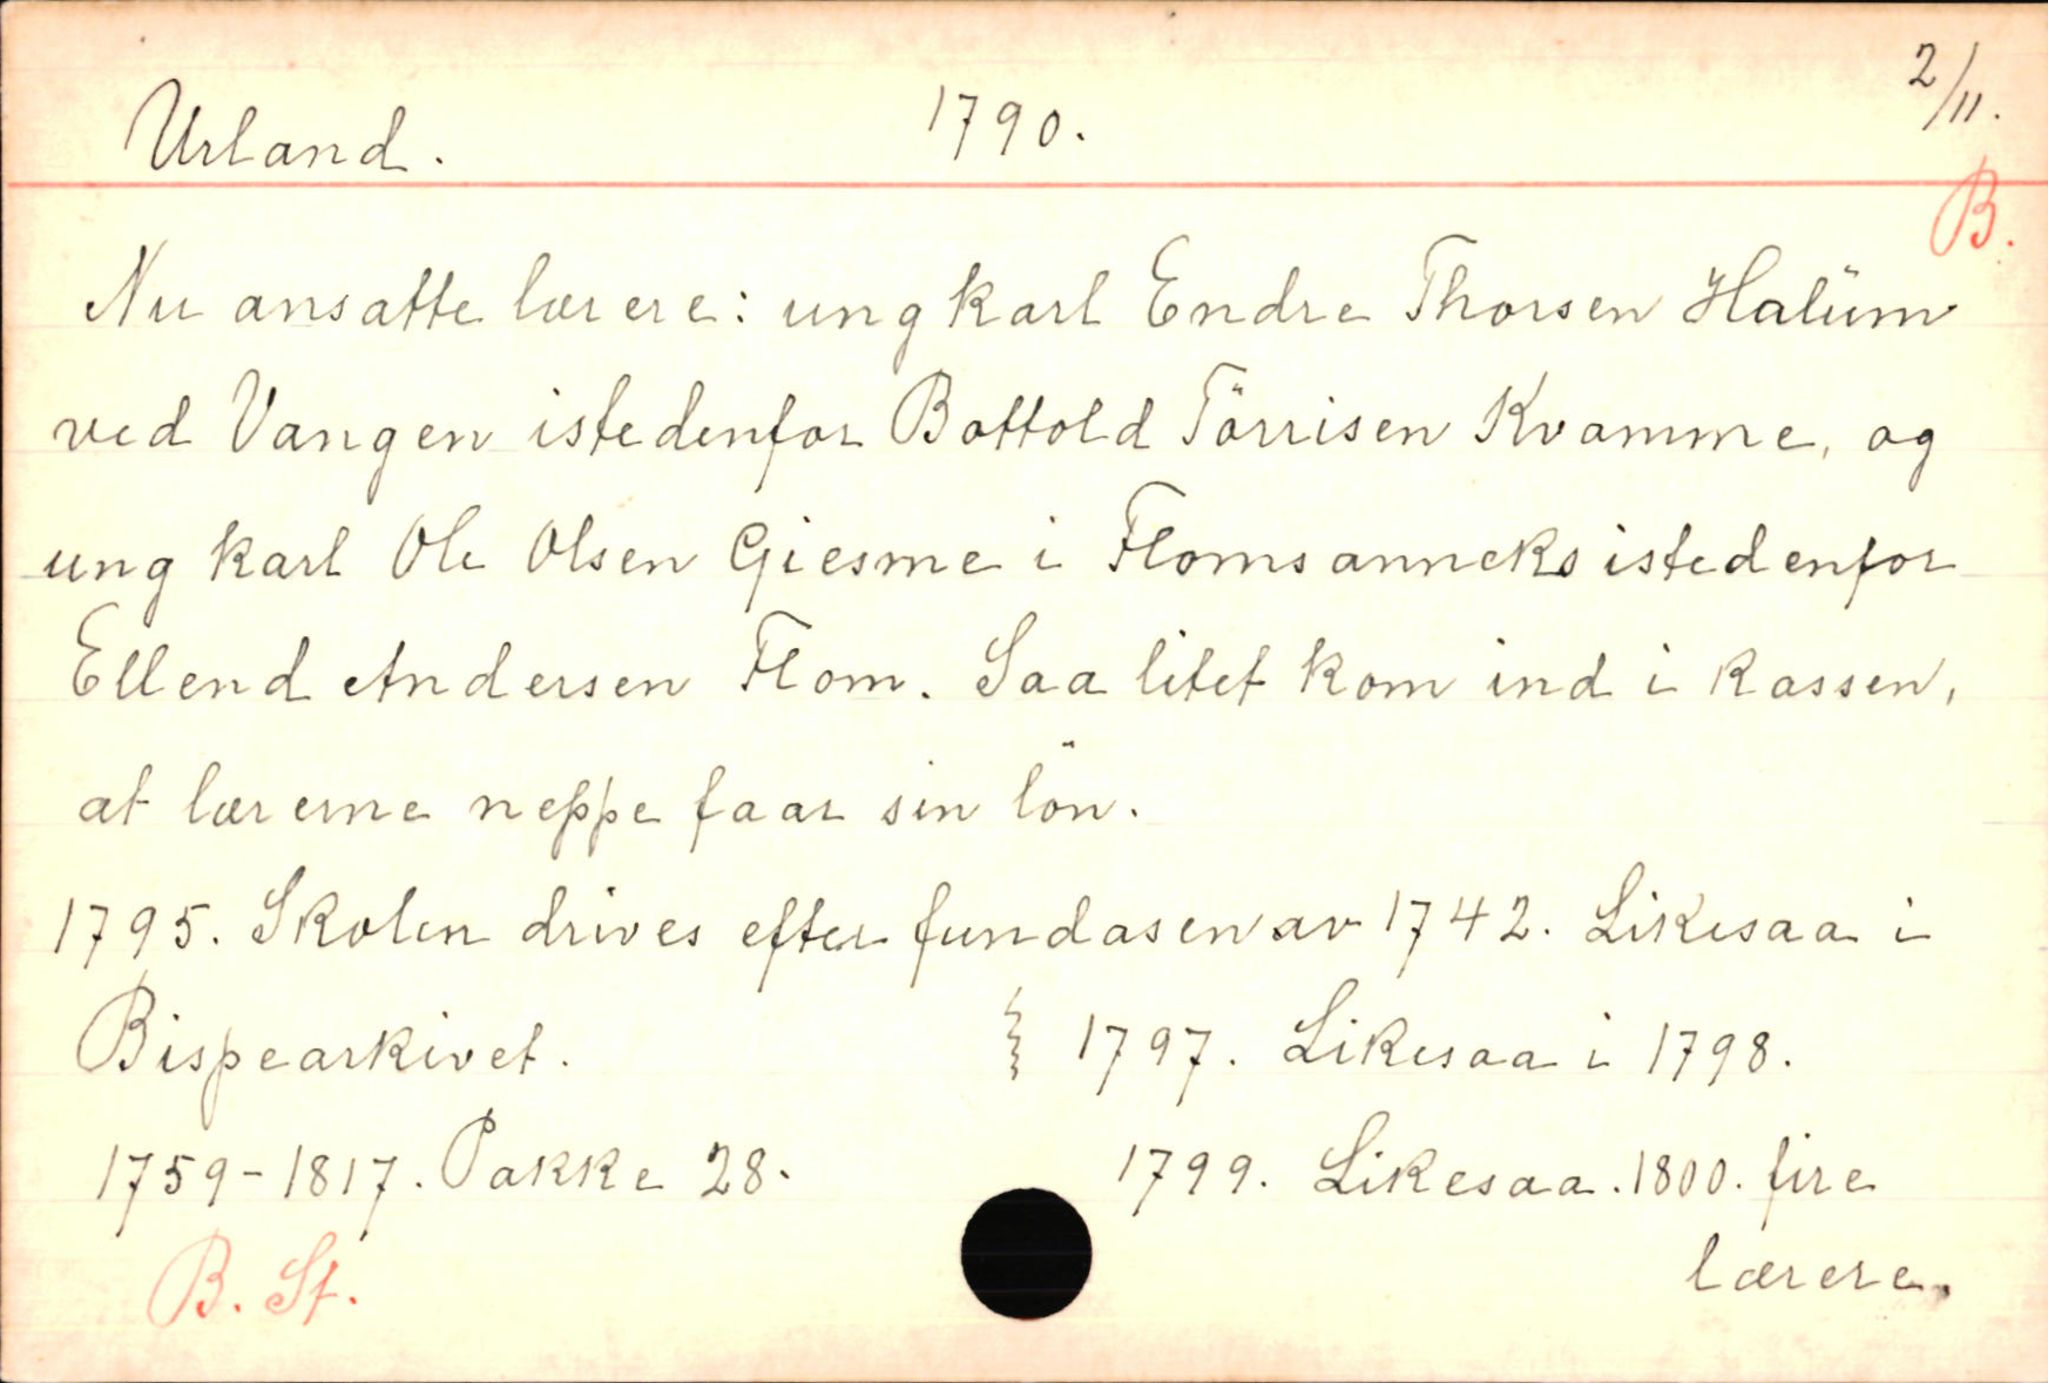 Urland. 1790. 2/11.
B.
Nu ansatte lærere: ungkarl Endre Thorsen Halüm
ved Vangen istedenfor Bottold Törrisen Kvamme, og
ungkarl Ole Olsen Giesme i Flomsanneks istedenfor
Ellend Andersen Flom. Saa litet kom ind i kassen,
at lærerne neppe faar sin lön.
1795. Skolen drives efter fundasen av 1742. Likesaa i
Bispearkivet. 1797. Likesaa i 1798.
1759-1817. Pakke 28. 1799. Likesaa. 1800. fire
lærere.
B. St.